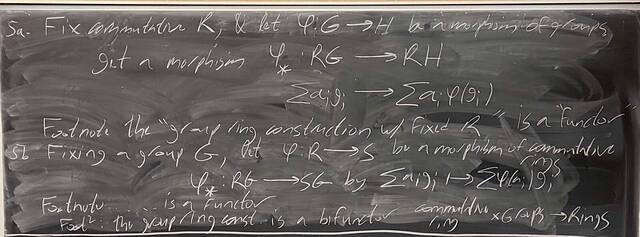 5a. Fix commutative R, & let φ: G → H be a morphism of groups
get a morphism φ_* : RG → RH
Σaᵢgᵢ → Σaᵢφ(gᵢ)
Footnote the "group ring construction w/ fixed R" is a "functor"
5b Fixing a group G, let φ: R → S be a morphism of commutative rings
φ_* : RG → SG by Σaᵢgᵢ ↦ Σφ(aᵢ)gᵢ
Footnote ........ is a functor
Foot² : the group ring const. is a bifunctor commutative ring × Groups → Rings